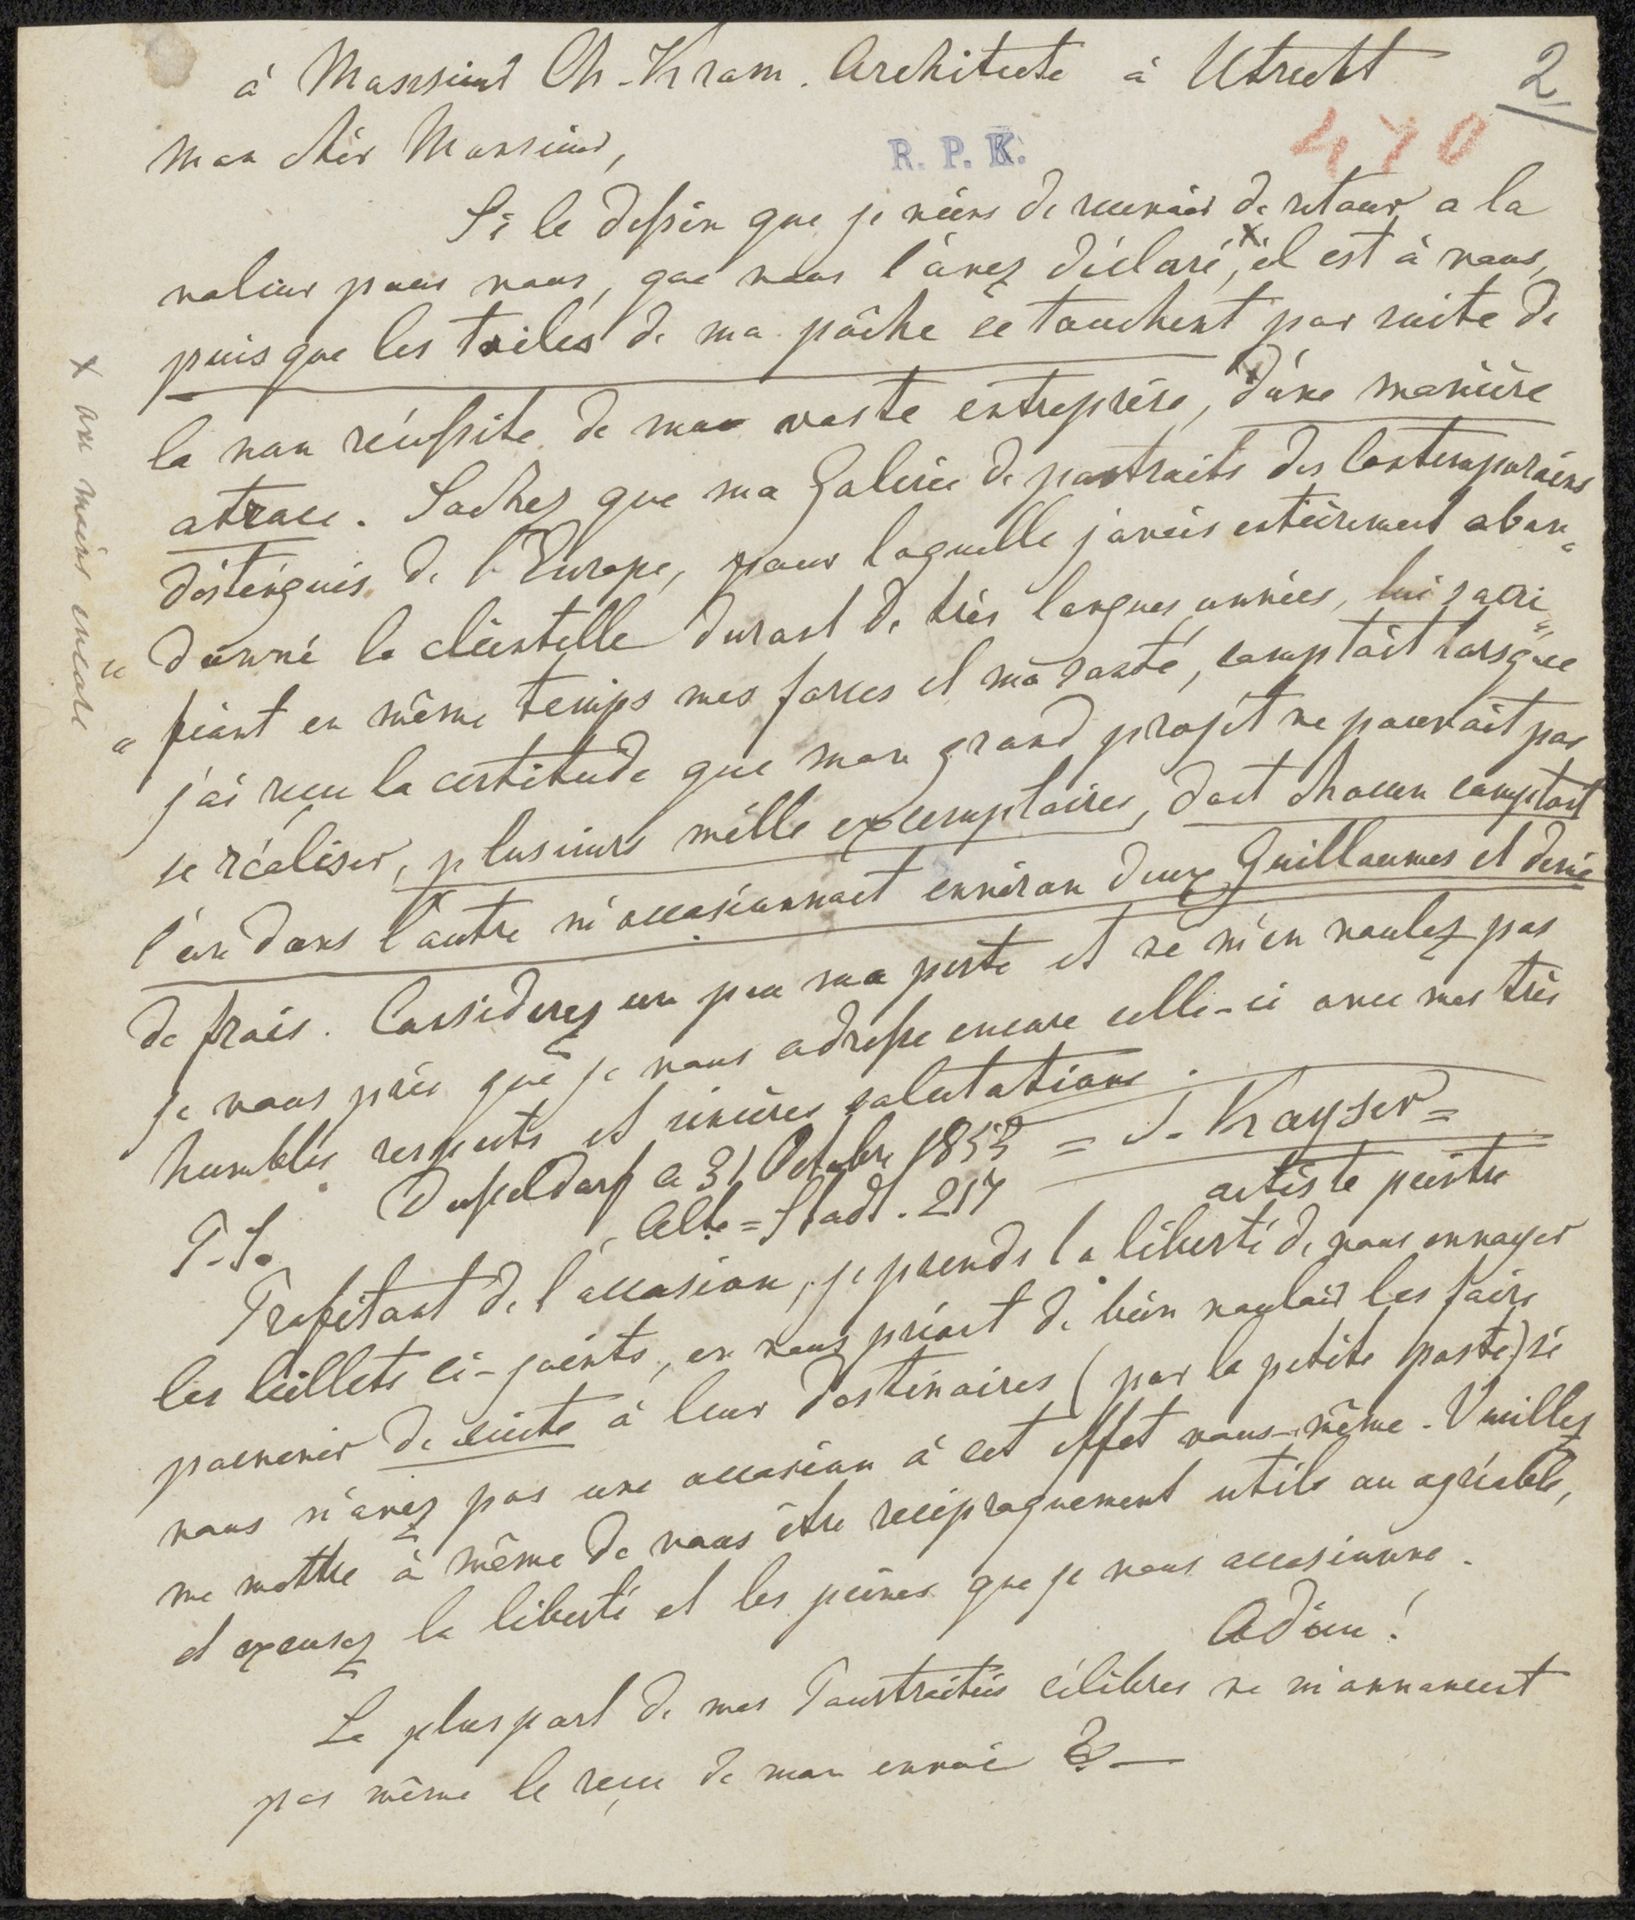 à Monsieur Ch. Kram. Architecte à Utrecht
2
470
R. P. K.
Mon chèr Monsieur,
Si le dessin que je viens de recevoir de retour a la
valeur pour vous, que vous l'avez déclaré, x il est à vous,
puisque les toiles de ma pôche se touchent par suite de
la non réussite de mon vaste entreprise, d'une manière
atroce. Sachez que ma Galerie de portraits des Contemporains
distingués de l'Europe, pour laquelle j'avais entièrement aban„
„ donné la clientelle durant de très longues années, lui sacri„
„ fiant en même temps mes forces et ma santé, comptait lorsque
j'ai reçu la certitude que mon grand projèt ne pouvait pas
se réaliser, plusieurs mille excemplaires, dont chacun comptant
l'un dans l'autre m'occasionnait environ deux Guillaumes et demie
de frais. Considerez un peu ma perte et ne m'en voulez pas
je vous prie que je vous adresse encore celle-ci avec mes très
humbles respects et sincères salutations.
Dusseldorf ce 31 Octobre 1853 = J. Kayser =
Alte = Stadt. 217 artiste peintre
P. S.
Profitant de l'occasion, je prends la liberté de vous envoyer
les billets ci-joints, en vous priant de bien vouloir les faire
parvenir de suite à leur destinaires (par la petite poste) si
vous n'avez pas une occasion à cet effet vous-même. Veuillez
me mettre à même de vous être reciproquement utile ou agréable,
et excusez la liberté et les peines que je vous occasionne.
Adieu!
La pluspart de mes Pourtraités célèbres ne m'annoncent
pas même le reçu de mon envoi
x ou moins encore